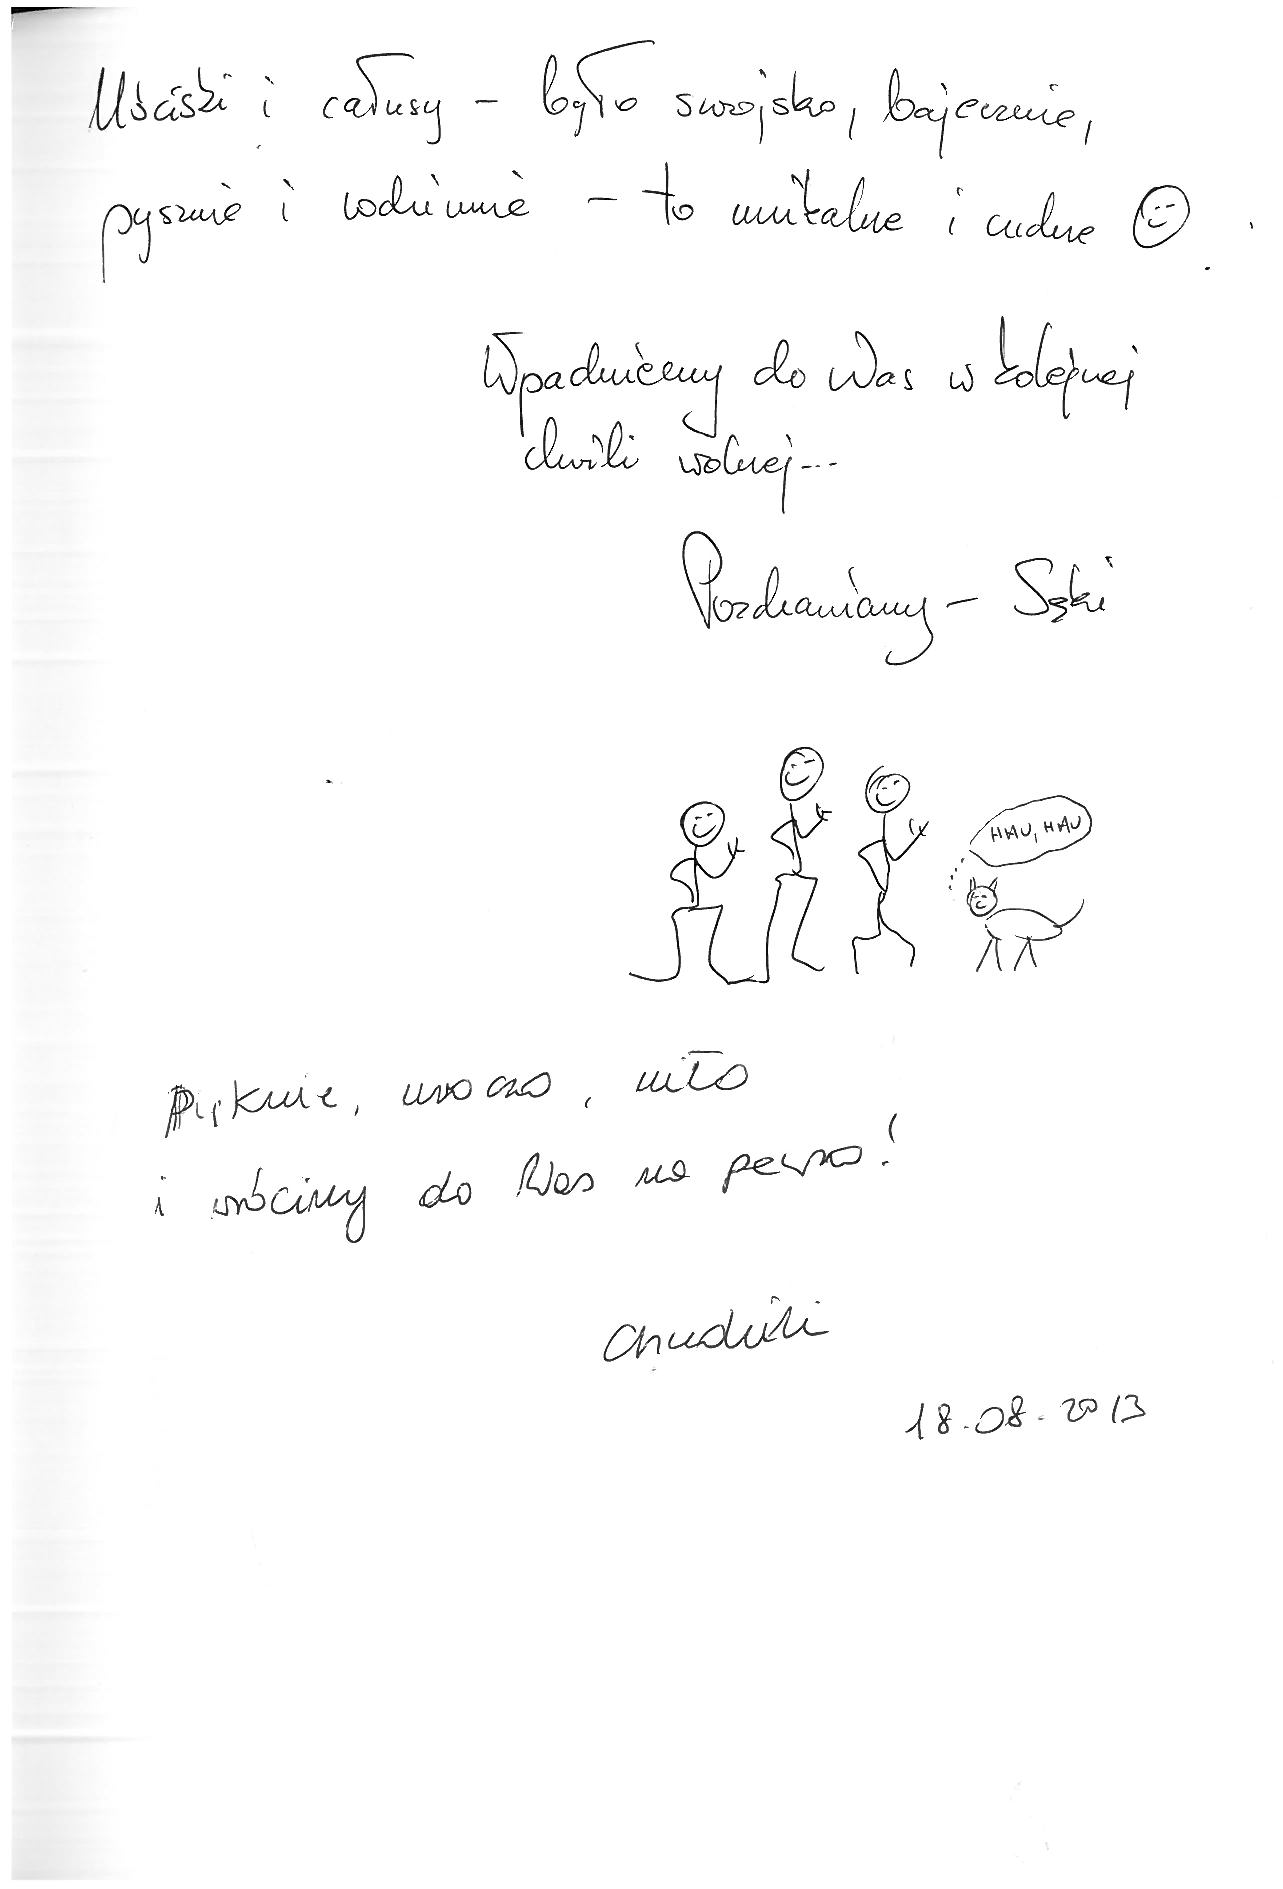 Uściski i całusy - było swojsko, bajecznie,
pysznie i rodzinnie - to unikalne i cudne
Wpadniemy do Was w kolejnej
chwili wolnej...
Pozdrawiamy - Sęki
HAU, HAU
Pięknie, uroczo, miło
i wrócimy do Was na pewno!
18.08.2013